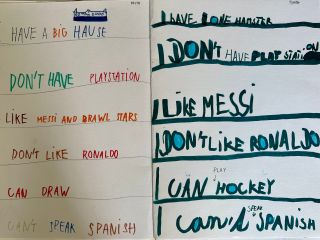 HAVE A BIG HAUSE
DON'T HAVE PLAYSTATION
LIKE MESSI AND BRAWL STARS
DON'T LIKE RONALDO
CAN DRAW
CAN'T SPEAK SPANISH
I HAVE ONE HAMSTER
I DON'T HAVE PLAY STATION
I LIKE MESSI
I DON'T LIKE RONALDO
I CAN PLAY HOCKEY
I can't SPEAK SPANISH